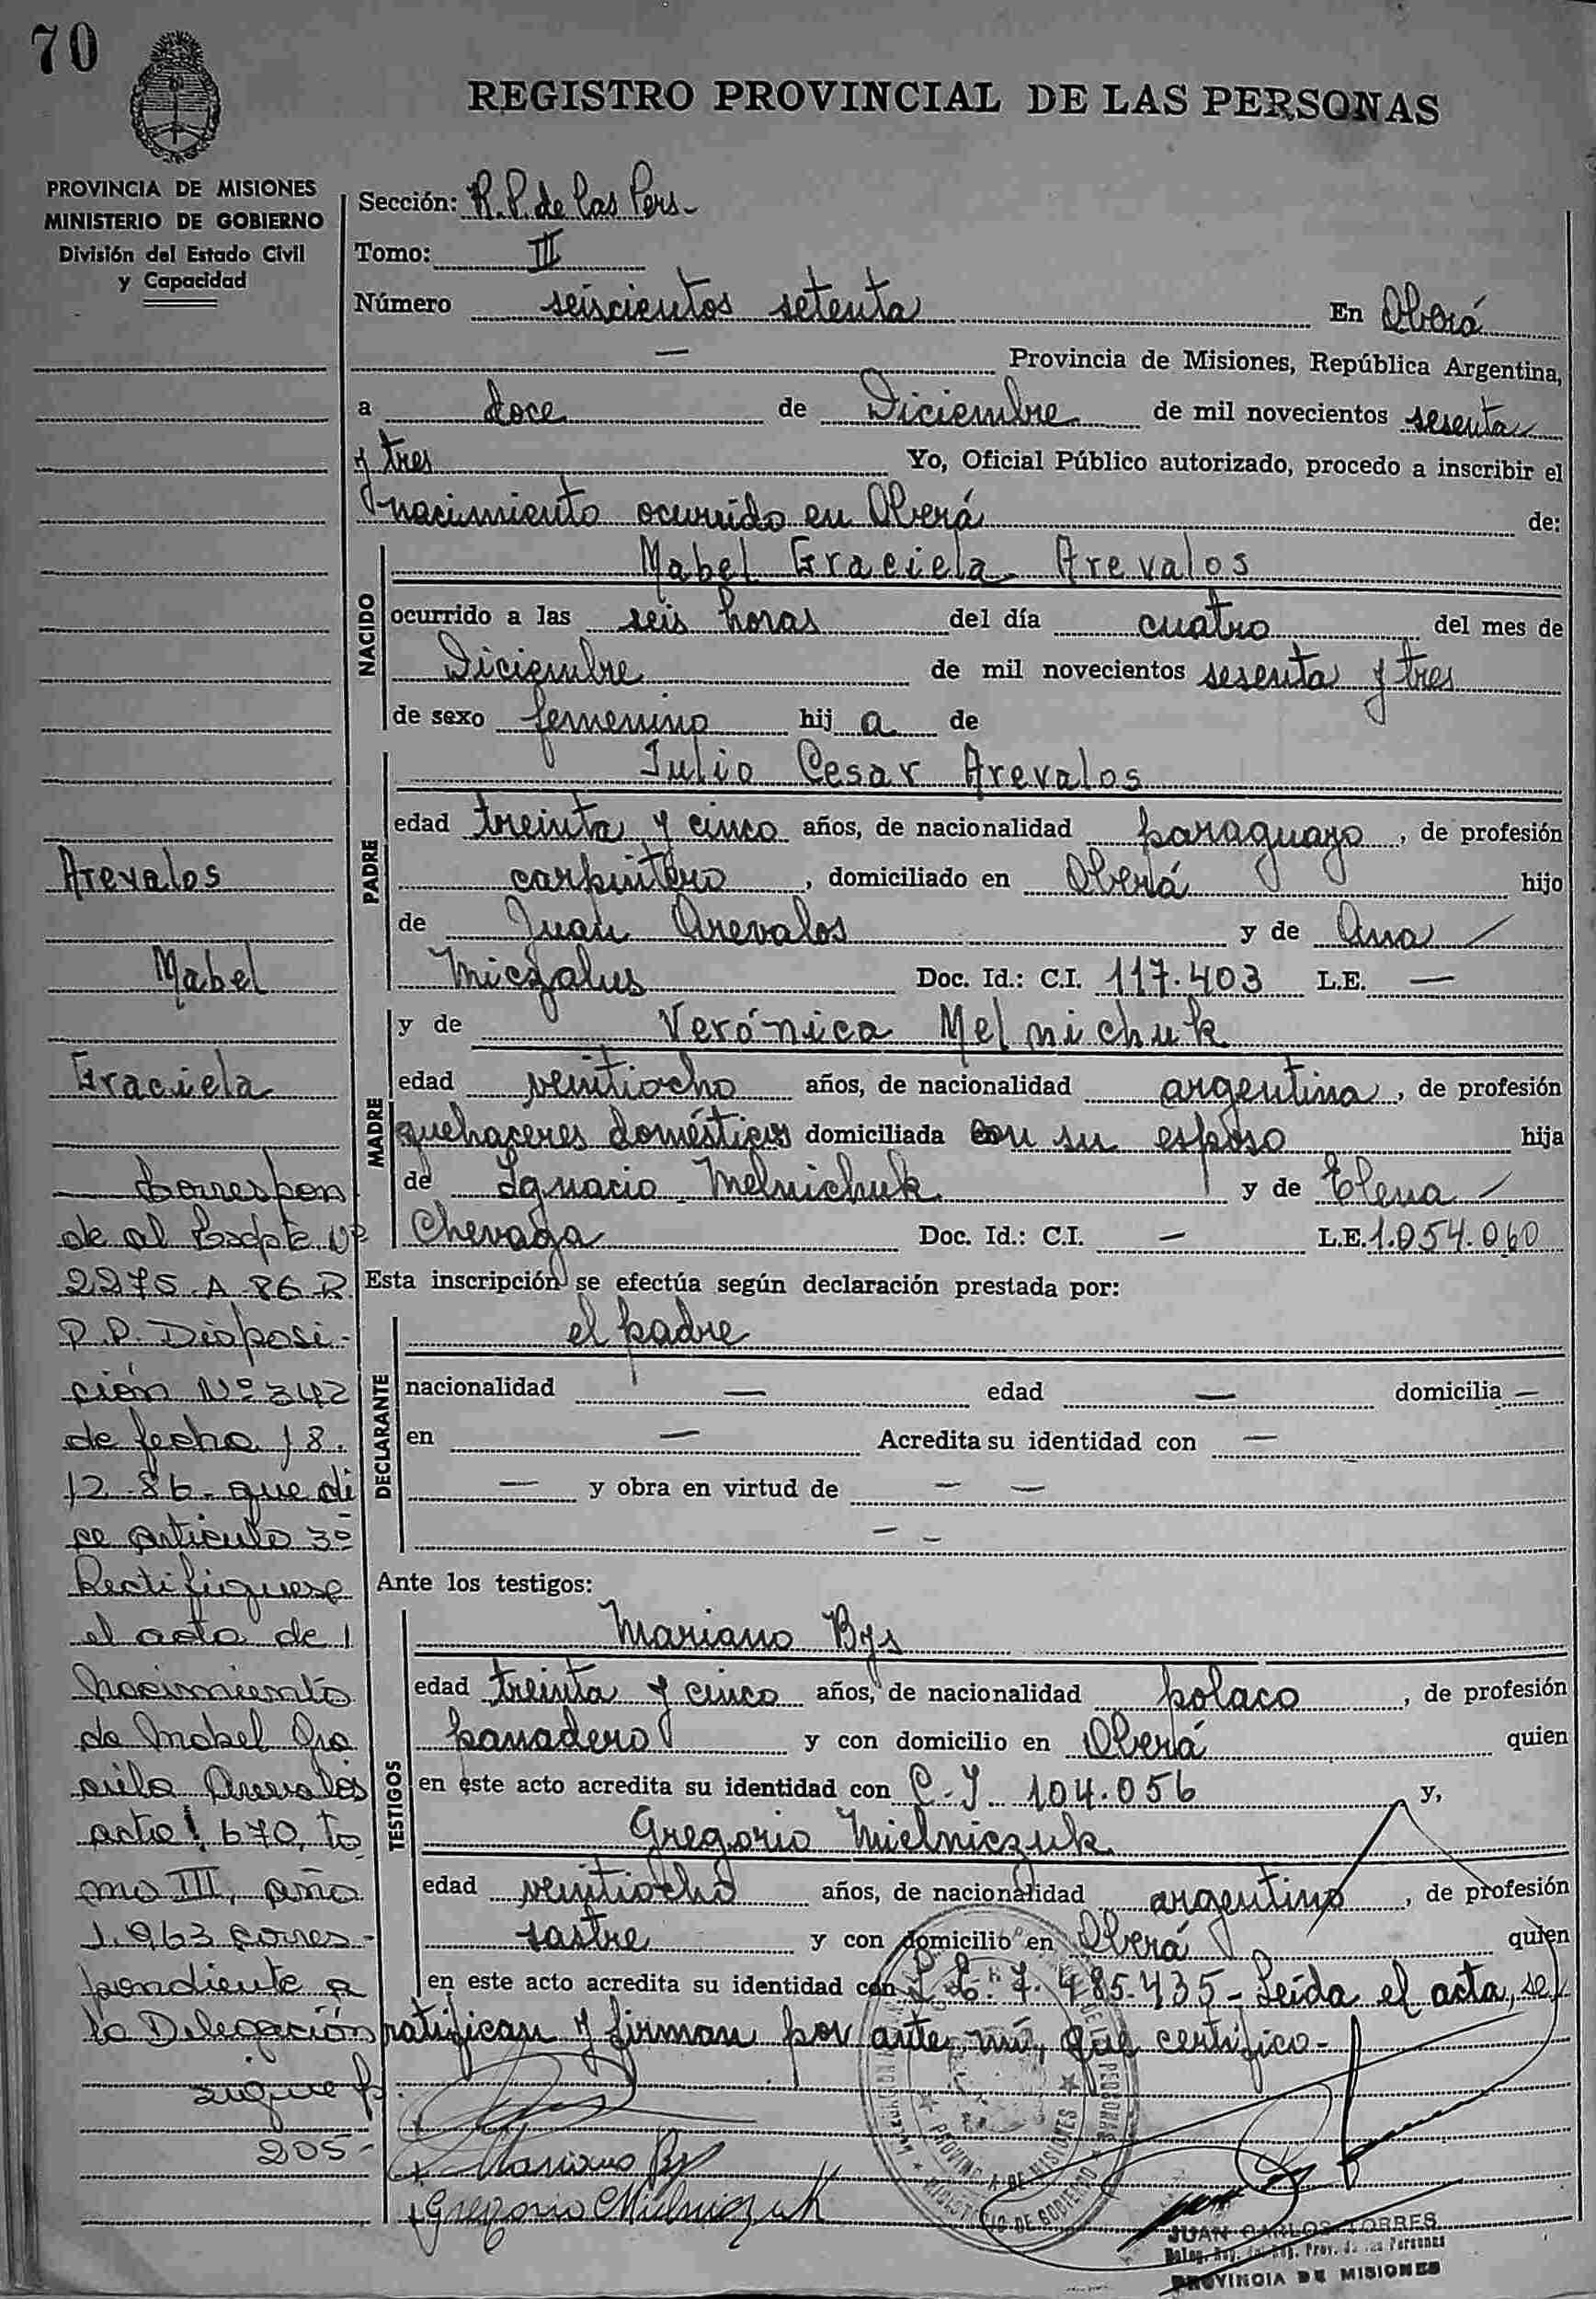 70
REGISTRO PROVINCIAL DE LAS PERSONAS
PROVINCIA DE MISIONES
MINISTERIO DE GOBIERNO
División del Estado Civil
y Capacidad
Sección: R.P. de las Pers-
Tomo: III
Número seiscientos setenta En Oberá
— Provincia de Misiones, República Argentina,
a doce de Diciembre de mil novecientos sesenta
y tres Yo, Oficial Público autorizado, procedo a inscribir el
nacimiento ocurrido en Oberá de:
NACIDO
Mabel Graciela Arevalos
ocurrido a las seis horas del día cuatro del mes de
Diciembre de mil novecientos sesenta y tres
de sexo femenino hij a de
PADRE
Julio Cesar Arevalos
edad treinta y cinco años, de nacionalidad paraguayo, de profesión
carpintero, domiciliado en Oberá hijo
de Juan Arevalos y de Ana
Miczalus Doc. Id.: C.I. 117.403 L.E. —
MADRE
y de Verónica Melnichuk
edad veintiocho años, de nacionalidad argentina, de profesión
quehaceres domésticos domiciliada con su esposo hija
de Ignacio Melnichuk y de Elena
Chevaga Doc. Id.: C.I. — L.E. 1.054.060
Esta inscripción se efectúa según declaración prestada por:
DECLARANTE
el padre
nacionalidad — edad — domicilia —
en — Acredita su identidad con —
— y obra en virtud de — —
— -
Ante los testigos:
TESTIGOS
Mariano Bys
edad treinta y cinco años, de nacionalidad polaco, de profesión
panadero y con domicilio en Oberá quien
en este acto acredita su identidad con C.I. 104.056 y,
Gregorio Mielniczuk
edad veintiocho años, de nacionalidad argentino, de profesión
sastre y con domicilio en Oberá quien
en este acto acredita su identidad con L.E. 7.485.435- Leída el acta, se
ratifican y firman por ante mí, que certifico-
Mariano Bys
Gregorio Mielniczuk
JUAN CARLOS TORRES
PROVINCIA DE MISIONES
Arevalos
Mabel
Graciela
Correspon
de al Expte Nº
2275-A-86-R.
P.P. Disposi-
ción Nº 342
de fecha 18.
12-86- que di
ce artículo 3º
Rectifiquese
el acta de
nacimiento
de Mabel Gra
ciela Arevalos
acta 670, to
mo III, año
1.963 corres-
pondiente a
la Delegación
sigue f.
205-